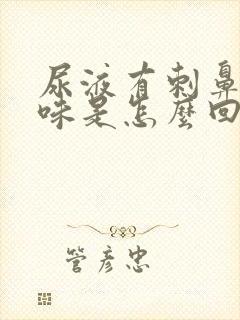 尿液有刺鼻
味是怎麼回
管彥忠